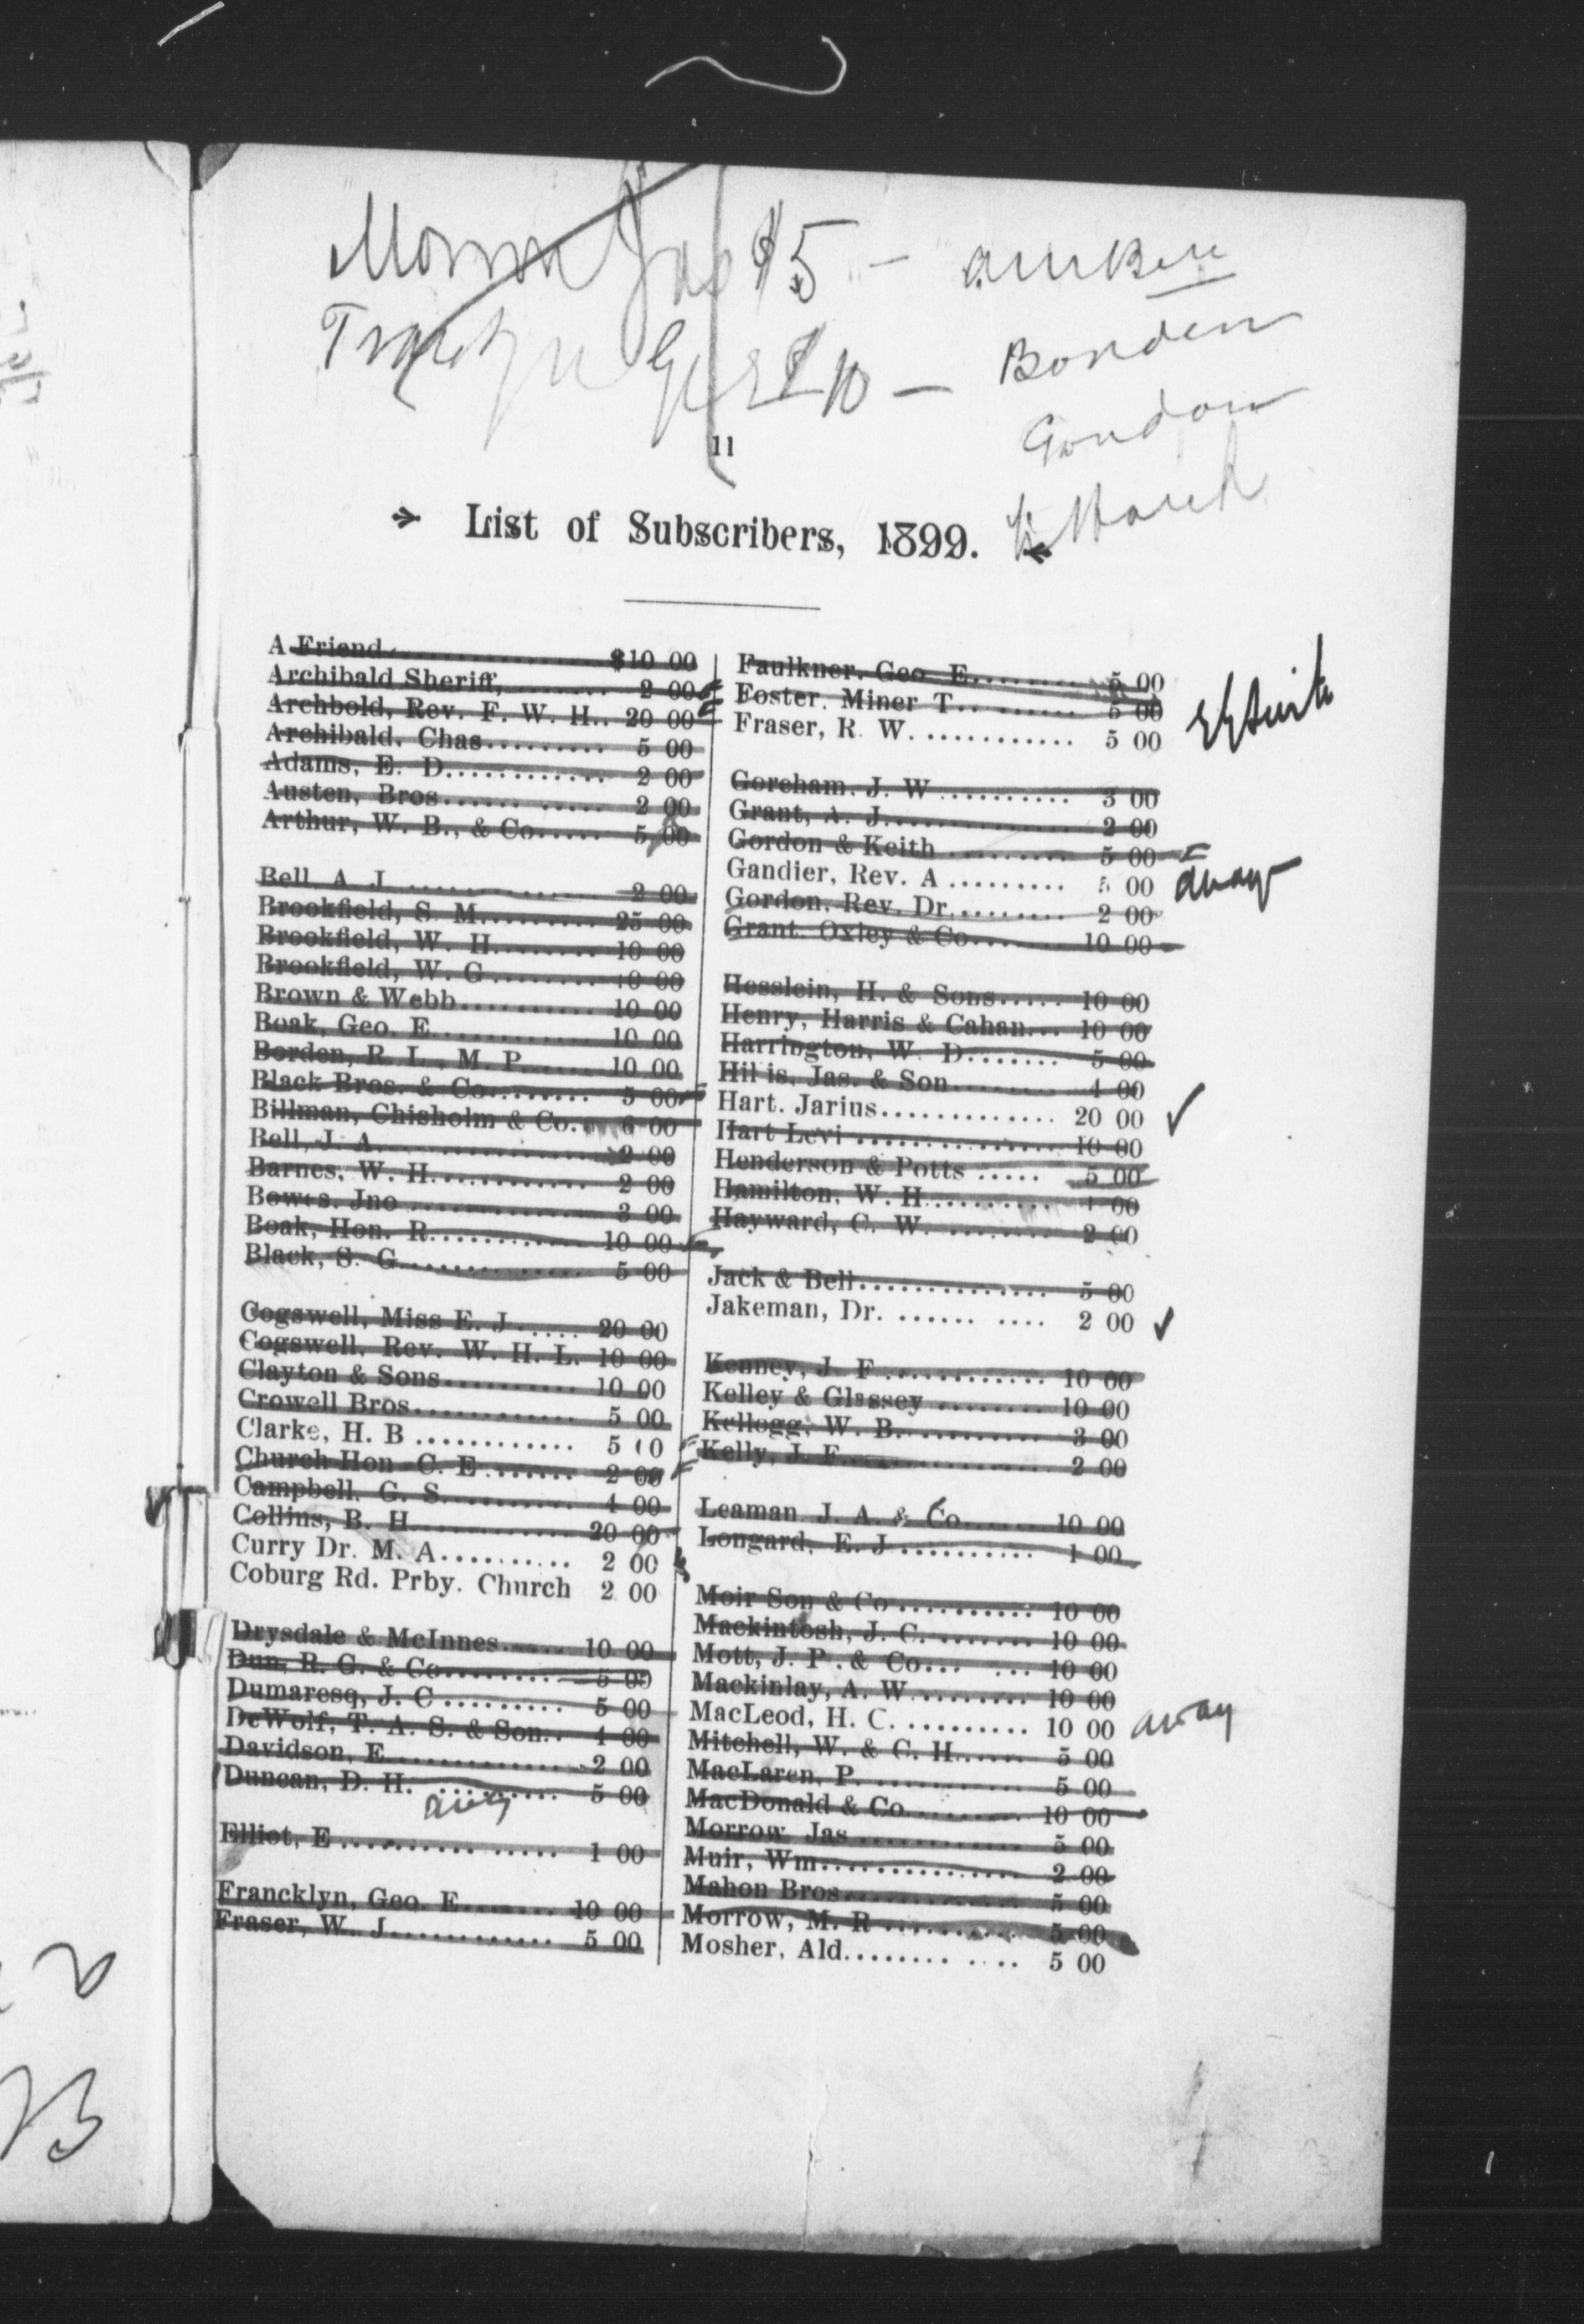 $5 -
$10 -
Borden
Gordon
11
List of Subscribers, 1899.
A Friend $10 00
Archibald Sheriff, 2 00
Archbold, Rev. F. W. H. 20 00
Archibald, Chas 5 00
Adams, E. D. 2 00
Austen, Bros 2 00
Arthur, W. B., & Co 5 00
Bell, A. J. 2 00
Brookfield, S. M. 25 00
Brookfield, W. H. 10 00
Brookfield, W. G. 10 00
Brown & Webb 10 00
Boak, Geo. E. 10 00
Borden, R. L., M. P. 10 00
Black Bros. & Co. 5 00
Billman, Chisholm & Co. 6 00
Bell, J. A. 2 00
Barnes, W. H. 2 00
Bowes, Jno 3 00
Boak, Hon. R. 10 00
Black, S. G. 5 00
Cogswell, Miss E. J. 20 00
Cogswell, Rev. W. H. L. 10 00
Clayton & Sons 10 00
Crowell Bros. 5 00
Clarke, H. B 5 00
Church Hon C. E 2 00
Campbell, G. S. 4 00
Collins, B. H 20 00
Curry Dr. M. A. 2 00
Coburg Rd. Prby. Church 2 00
Drysdale & McInnes 10 00
Dun, R. G. & Co 5 00
Dumaresq, J. C 5 00
DeWolf, T. A. S. & Son 4 00
Davidson, E 2 00
Duncan, D. H. 5 00
Elliot, E 1 00
Francklyn, Geo. E. 10 00
Fraser, W. J. 5 00
Faulkner, Geo E. 5 00
Foster, Miner T. 5 00
Fraser, R. W. 5 00
Goreham, J. W 3 00
Grant, A. J. 2 00
Gordon & Keith 5 00
Gandier, Rev. A 5 00 away
Gordon, Rev. Dr. 2 00
Grant, Oxley & Co. 10 00
Hesslein, H. & Sons 10 00
Henry, Harris & Cahan 10 00
Harrington, W. D. 5 00
Hillis, Jas. & Son 4 00
Hart. Jarius 20 00 ✓
Hart Levi 10 00
Henderson & Potts 5 00
Hamilton, W. H. 4 00
Hayward, C. W. 2 00
Jack & Bell 5 00
Jakeman, Dr. 2 00 ✓
Kenney, J. F. 10 00
Kelley & Glassey 10 00
Kellogg, W. B. 3 00
Kelly, J. F. 2 00
Leaman J. A. & Co 10 00
Longard, E. J. 1 00
Moir Son & Co 10 00
Mackintosh, J. C. 10 00
Mott, J. P. & Co. 10 00
Mackinlay, A. W. 10 00
MacLeod, H. C. 10 00 away
Mitchell, W. & C. H. 5 00
MacLaren, P. 5 00
MacDonald & Co 10 00
Morrow, Jas 5 00
Muir, Wm 2 00
Mahon Bros 5 00
Morrow, M. R 5 00
Mosher, Ald. 5 00